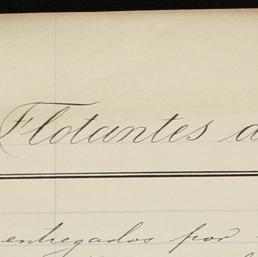 Flotantes d
entregados por